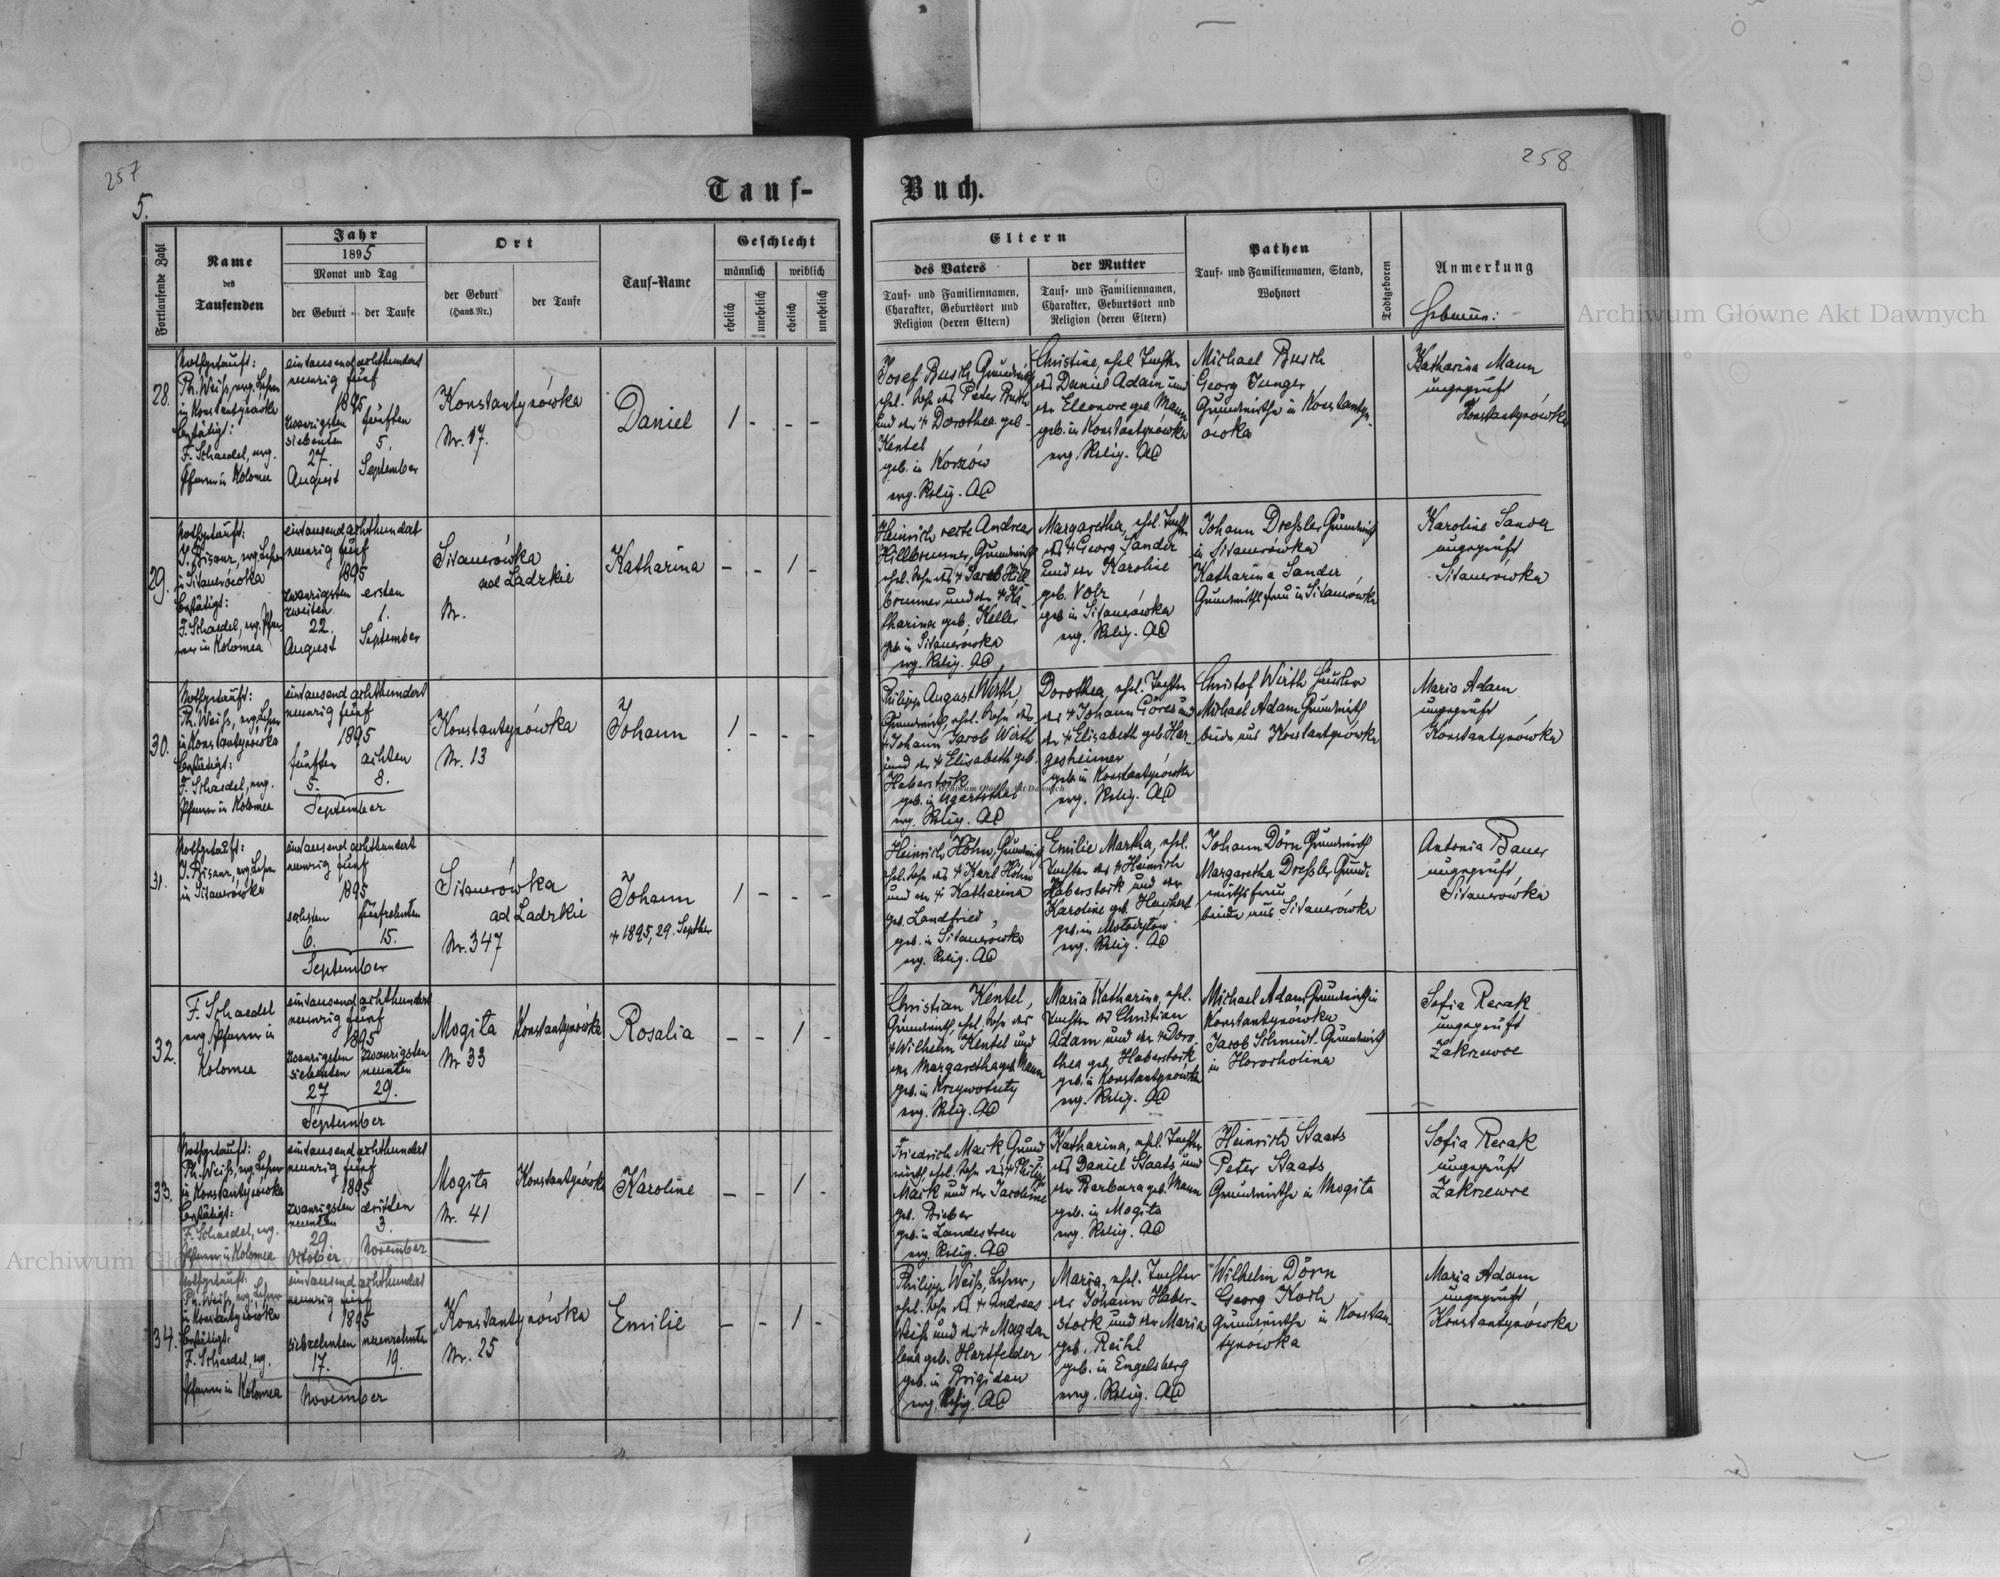 257
258
5.
Tauf-
Buch.
Fortlaufende Zahl
Name
des
Taufenden
Jahr
1895
Monat und Tag
der Geburt
der Taufe
Ort
der Geburt
(Haus-Nr.)
der Taufe
Tauf-Name
Geschlecht
männlich
weiblich
ehelich
unehelich
ehelich
unehelich
Eltern
des Vaters
Tauf- und Familiennamen,
Charakter, Geburtsort und
Religion (deren Eltern)
der Mutter
Tauf- und Familiennamen,
Charakter, Geburtsort und
Religion (deren Eltern)
Pathen
Tauf- und Familiennamen, Stand,
Wohnort
Todtgeboren
Anmerkung
Hebamme:
28.
Nothgetauft:
Ph. Weiß, evg. Lehrer
in Konstantynówka
bestätigt:
F. Schaedel, evg.
Pfarrer in Kolomea
eintausend achthundert
neunzig fünf
1895
zwanzigsten
siebenten
27.
August
fünften
5.
September
Konstantynówka
Nr. 17.
Daniel
1 - - -
Josef Busch, Grundwirth
ehel. Sohn des Peter Busch
und der † Dorothea geb.
Kentel
geb. in Korszów
evg. Relig. AC
Christine, ehel. Tochter
des Daniel Adam und
der Eleonore geb. Mann
geb. in Konstantynówka
evg. Relig. AC
Michael Busch
Georg Junger
Grundwirthe in Konstantyn-
ówka
Katharina Mann
ungeprüft
Konstantynówka
29.
Nothgetauft:
evg. Lehrer
in Sitauerówka
bestätigt:
F. Schaedel, evg. Pfar-
rer in Kolomea
eintausend achthundert
neunzig fünf
1895
zwanzigsten
zweiten
22.
August
ersten
1.
September
Sitauerówka
ad Ladzkie
Nr.
Katharina
- - 1 -
Heinrich recte Andreas
Hillbrunner, Grundwirth
ehel. Sohn des † Jacob Hill-
brunner und der † Ka-
tharina geb. Keller
geb. in Sitauerówka
evg. Relig. AC
Margaretha, ehel. Tochter
des † Georg Sander
und der Karoline
geb. Volz
geb. in Sitauerówka
evg. Relig. AC
Johann Dreßler Grundwirth
in Sitauerówka
Katharina Sander
Grundwirthsfrau in Sitauerówka
Karoline Sander
ungeprüft
Sitauerówka
30.
Nothgetauft:
Ph. Weiß, evg. Lehrer
in Konstantynówka
bestätigt:
F. Schaedel, evg.
Pfarrer in Kolomea
eintausend achthundert
neunzig fünf
1895
fünften
5.
achten
8.
September
Konstantynówka
Nr. 13
Johann
1 - - -
Philipp August Wirth
Grundwirth, ehel. Sohn des
† Johann Jacob Wirth
und der † Elisabeth geb.
Haberstock
geb. in Ugartsthal
evg. Relig. AC
Dorothea, ehel. Tochter
des † Johann Göres und
der † Elisabeth geb. Har-
gesheimer
geb. in Konstantynówka
evg. Relig. AC
Christof Wirth
Michael Adam Grundwirth
beide aus Konstantynówka
Maria Adam
ungeprüft
Konstantynówka
31.
Nothgetauft:
evg. Lehrer
in Sitauerówka
eintausend achthundert
neunzig fünf
1895
sechsten
6.
fünfzehnten
15.
September
Sitauerówka
ad Ladzkie
Nr. 347
Johann
† 1895, 29. Septber
1 - - -
Heinrich Höhn, Grundwirth
ehel. Sohn des † Karl Höhn
und der † Katharina
geb. Landfried
geb. in Sitauerówka
evg. Relig. AC
Emilie Martha, ehel.
Tochter des † Heinrich
Haberstock und der
Karoline geb.
geb. in Mołodyłów
evg. Relig. AC
Johann Dörn Grundwirth
Margaretha Dreßler Grund-
wirthsfrau
beide aus Sitauerówka
Antonia Bauer
ungeprüft
Sitauerówka
32.
F. Schaedel
evg. Pfarrer in
Kolomea
eintausend achthundert
neunzig fünf
1895
zwanzigsten
siebenten
27
zwanzigsten
neunten
29.
September
Mogita
Nr 33
Konstantynówka
Rosalia
- - 1 -
Christian Kentel,
Grundwirth, ehel. Sohn des
† Wilhelm Kentel und
der Margaretha geb. Mann
geb. in Krzywotuty
evg. Relig. AC
Maria Katharina, ehel.
Tochter des Christian
Adam und der † Doro-
thea geb. Haberstock
geb. in Konstantynówka
evg. Relig. AC
Michael Adam Grundwirth in
Konstantynówka
Jacob Schmidt Grundwirth
in Horocholina
Sofia Recak
ungeprüft
Zakrzewce
33.
Nothgetauft:
Ph. Weiß, evg. Lehrer
in Konstantynówka
bestätigt:
F. Schaedel, evg.
Pfarrer in Kolomea
eintausend achthundert
neunzig fünf
1895
zwanzigsten
neunten
29.
October
dritten
3.
November
Mogita
Nr. 41
Konstantynówka
Karoline
- - 1 -
Friedrich Mack, Grund-
wirth, ehel. Sohn des † Philipp
Mack und der Karoline
geb. Bieber
geb. in Landestreu
evg. Relig. AC
Katharina, ehel. Tochter
des Daniel Staats und
der Barbara geb. Mann
geb. in Mogita
evg. Relig. AC
Heinrich Staats
Peter Staats
Grundwirthe in Mogita
Sofia Recak
ungeprüft
Zakrzewce
34.
Nothgetauft:
Ph. Weiß, evg. Lehrer
in Konstantynówka
bestätigt:
F. Schaedel, evg.
Pfarrer in Kolomea
eintausend achthundert
neunzig fünf
1895
siebzehnten
17.
neunzehnten
19.
November
Konstantynówka
Nr. 25
Emilie
- - 1 -
Philipp Weiß, Lehrer,
ehel. Sohn des † Andreas
Weiß und der † Magda-
lena geb. Hartfelder
geb. in Brigidau
evg. Relig. AC
Maria, ehel. Tochter
des Johann Haber-
stock und der Maria
geb. Reihl
geb. in Engelsberg
evg. Relig. AC
Wilhelm Dörn
Georg Koch
Grundwirthe in Konstan-
tynówka
Maria Adam
ungeprüft
Konstantynówka
Archiwum Główne Akt Dawnych
Archiwum Główne Akt Dawnych
Archiwum Główne Akt Dawnych